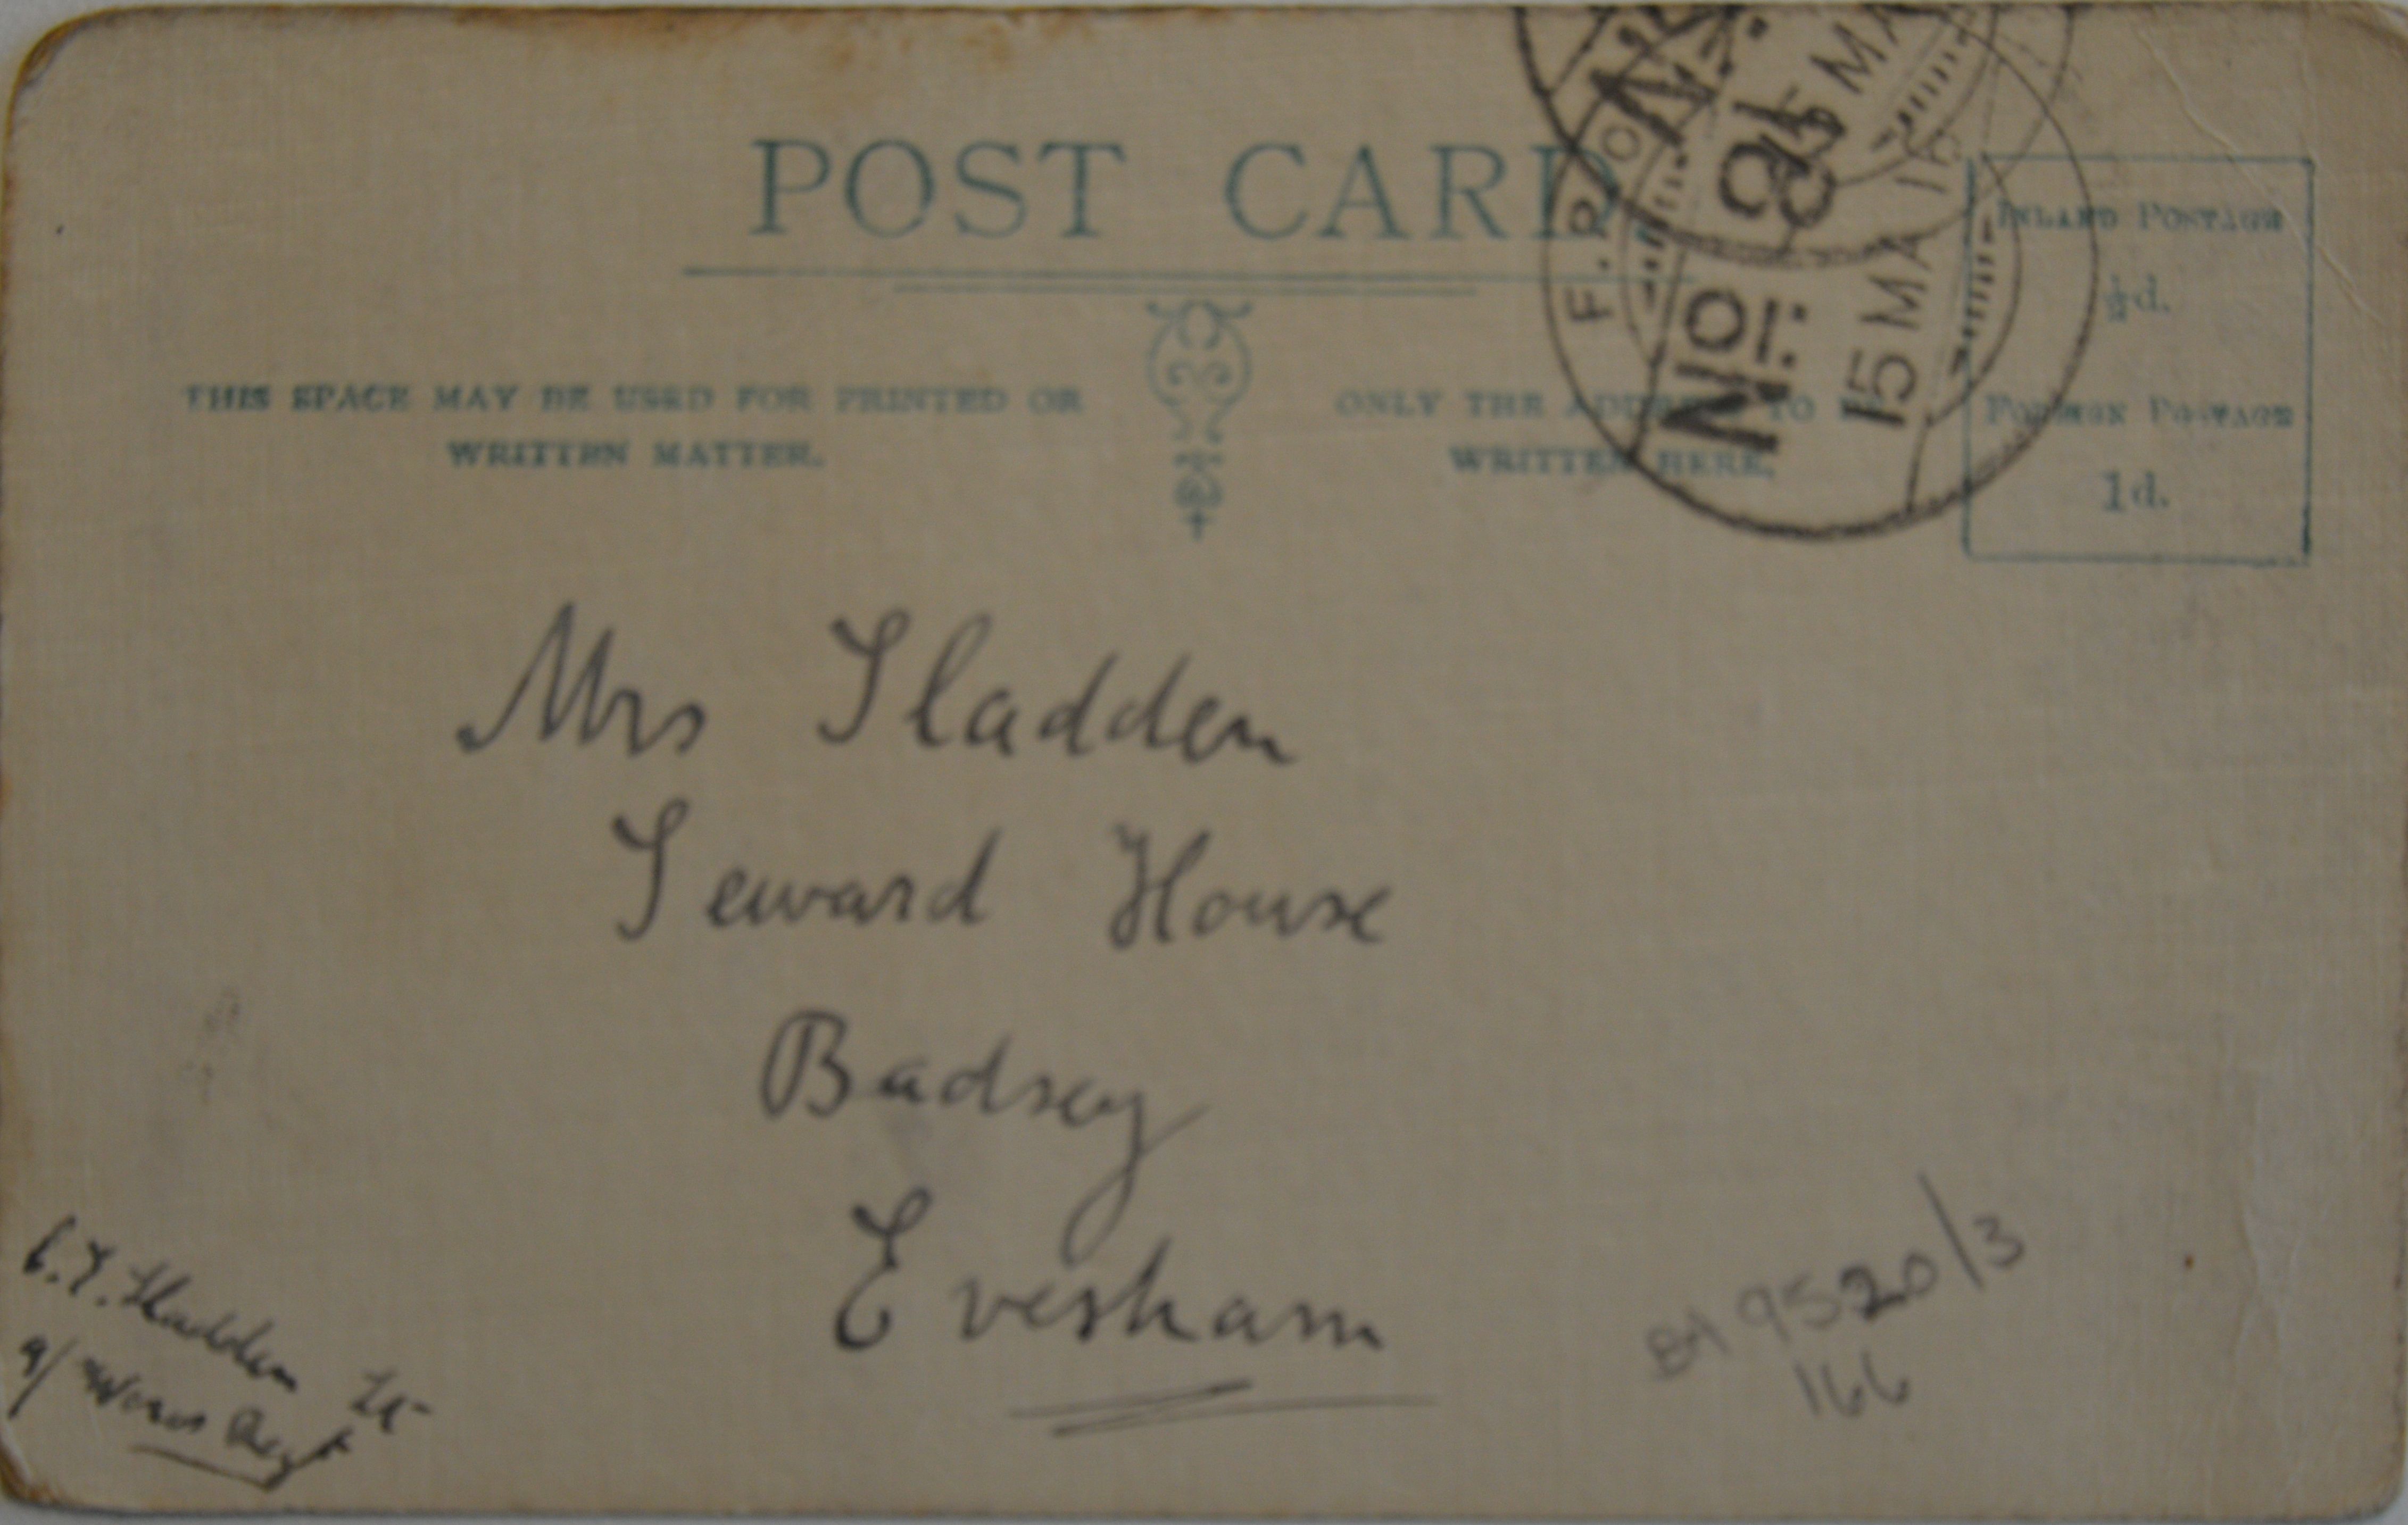 POST CARD.
THIS SPACE MAY BE USED FOR PRINTED OR
WRITTEN MATTER.
ONLY THE ADDRESS TO
WRITTEN HERE.
INLAND POSTAGE
½d.
FOREIGN POSTAGE
1d.
No. 81
15 MA
F.P.O.
No. 81
15 MA 16
Mrs Sladden
Seward House
Badsey
Evesham
C.E. Sladden Lt
9/ Worcs Regt
9520/3
166